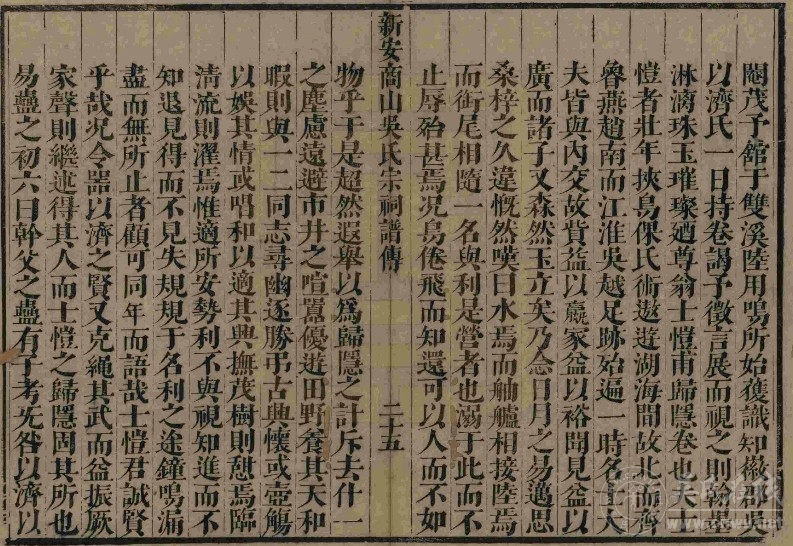 閼茂予舘于雙溪陸用鳴所始獲識知㨗郡吳
以濟氏一日持卷謁予徵言展而視之則翰墨
淋漓珠玉璀璨廼尊翁士愷甫歸隱卷也夫士
愷者壯年挾烏倮氏術遨遊湖海間故北而齊
魯燕趙南而江淮吳越足跡殆遍一時名士大
夫皆與內交故貲益以贏家益以裕聞見益以
廣而諸子又森然玉立矣乃念日月之易邁思
桑梓之久違慨然嘆曰水焉而舳艫相接陸焉
而銜尾相隨一名與利是營者也溺于此而不
止辱殆甚焉况鳥倦飛而知還可以人而不如
新安商山吳氏宗祠譜傳
二十五
物乎于是超然遐舉以爲歸隱之計斥去什一
之塵慮遠避市井之喧囂優遊田野養其天和
暇則與一二同志尋幽逐勝弔古興懷或壺觴
以娛其情或唱和以適其興撫茂樹則憩焉臨
淸流則濯焉惟適所安勢利不與視知進而不
知退見得而不見失規規于名利之途鐘鳴漏
盡而無所止者顧可同年而語哉士愷君誠賢
乎哉况令器以濟之賢又克繩其武而益振厥
家聲則繼述得其人而士愷之歸隱固其所也
易蠱之初六曰幹父之蠱有子考旡咎以濟以